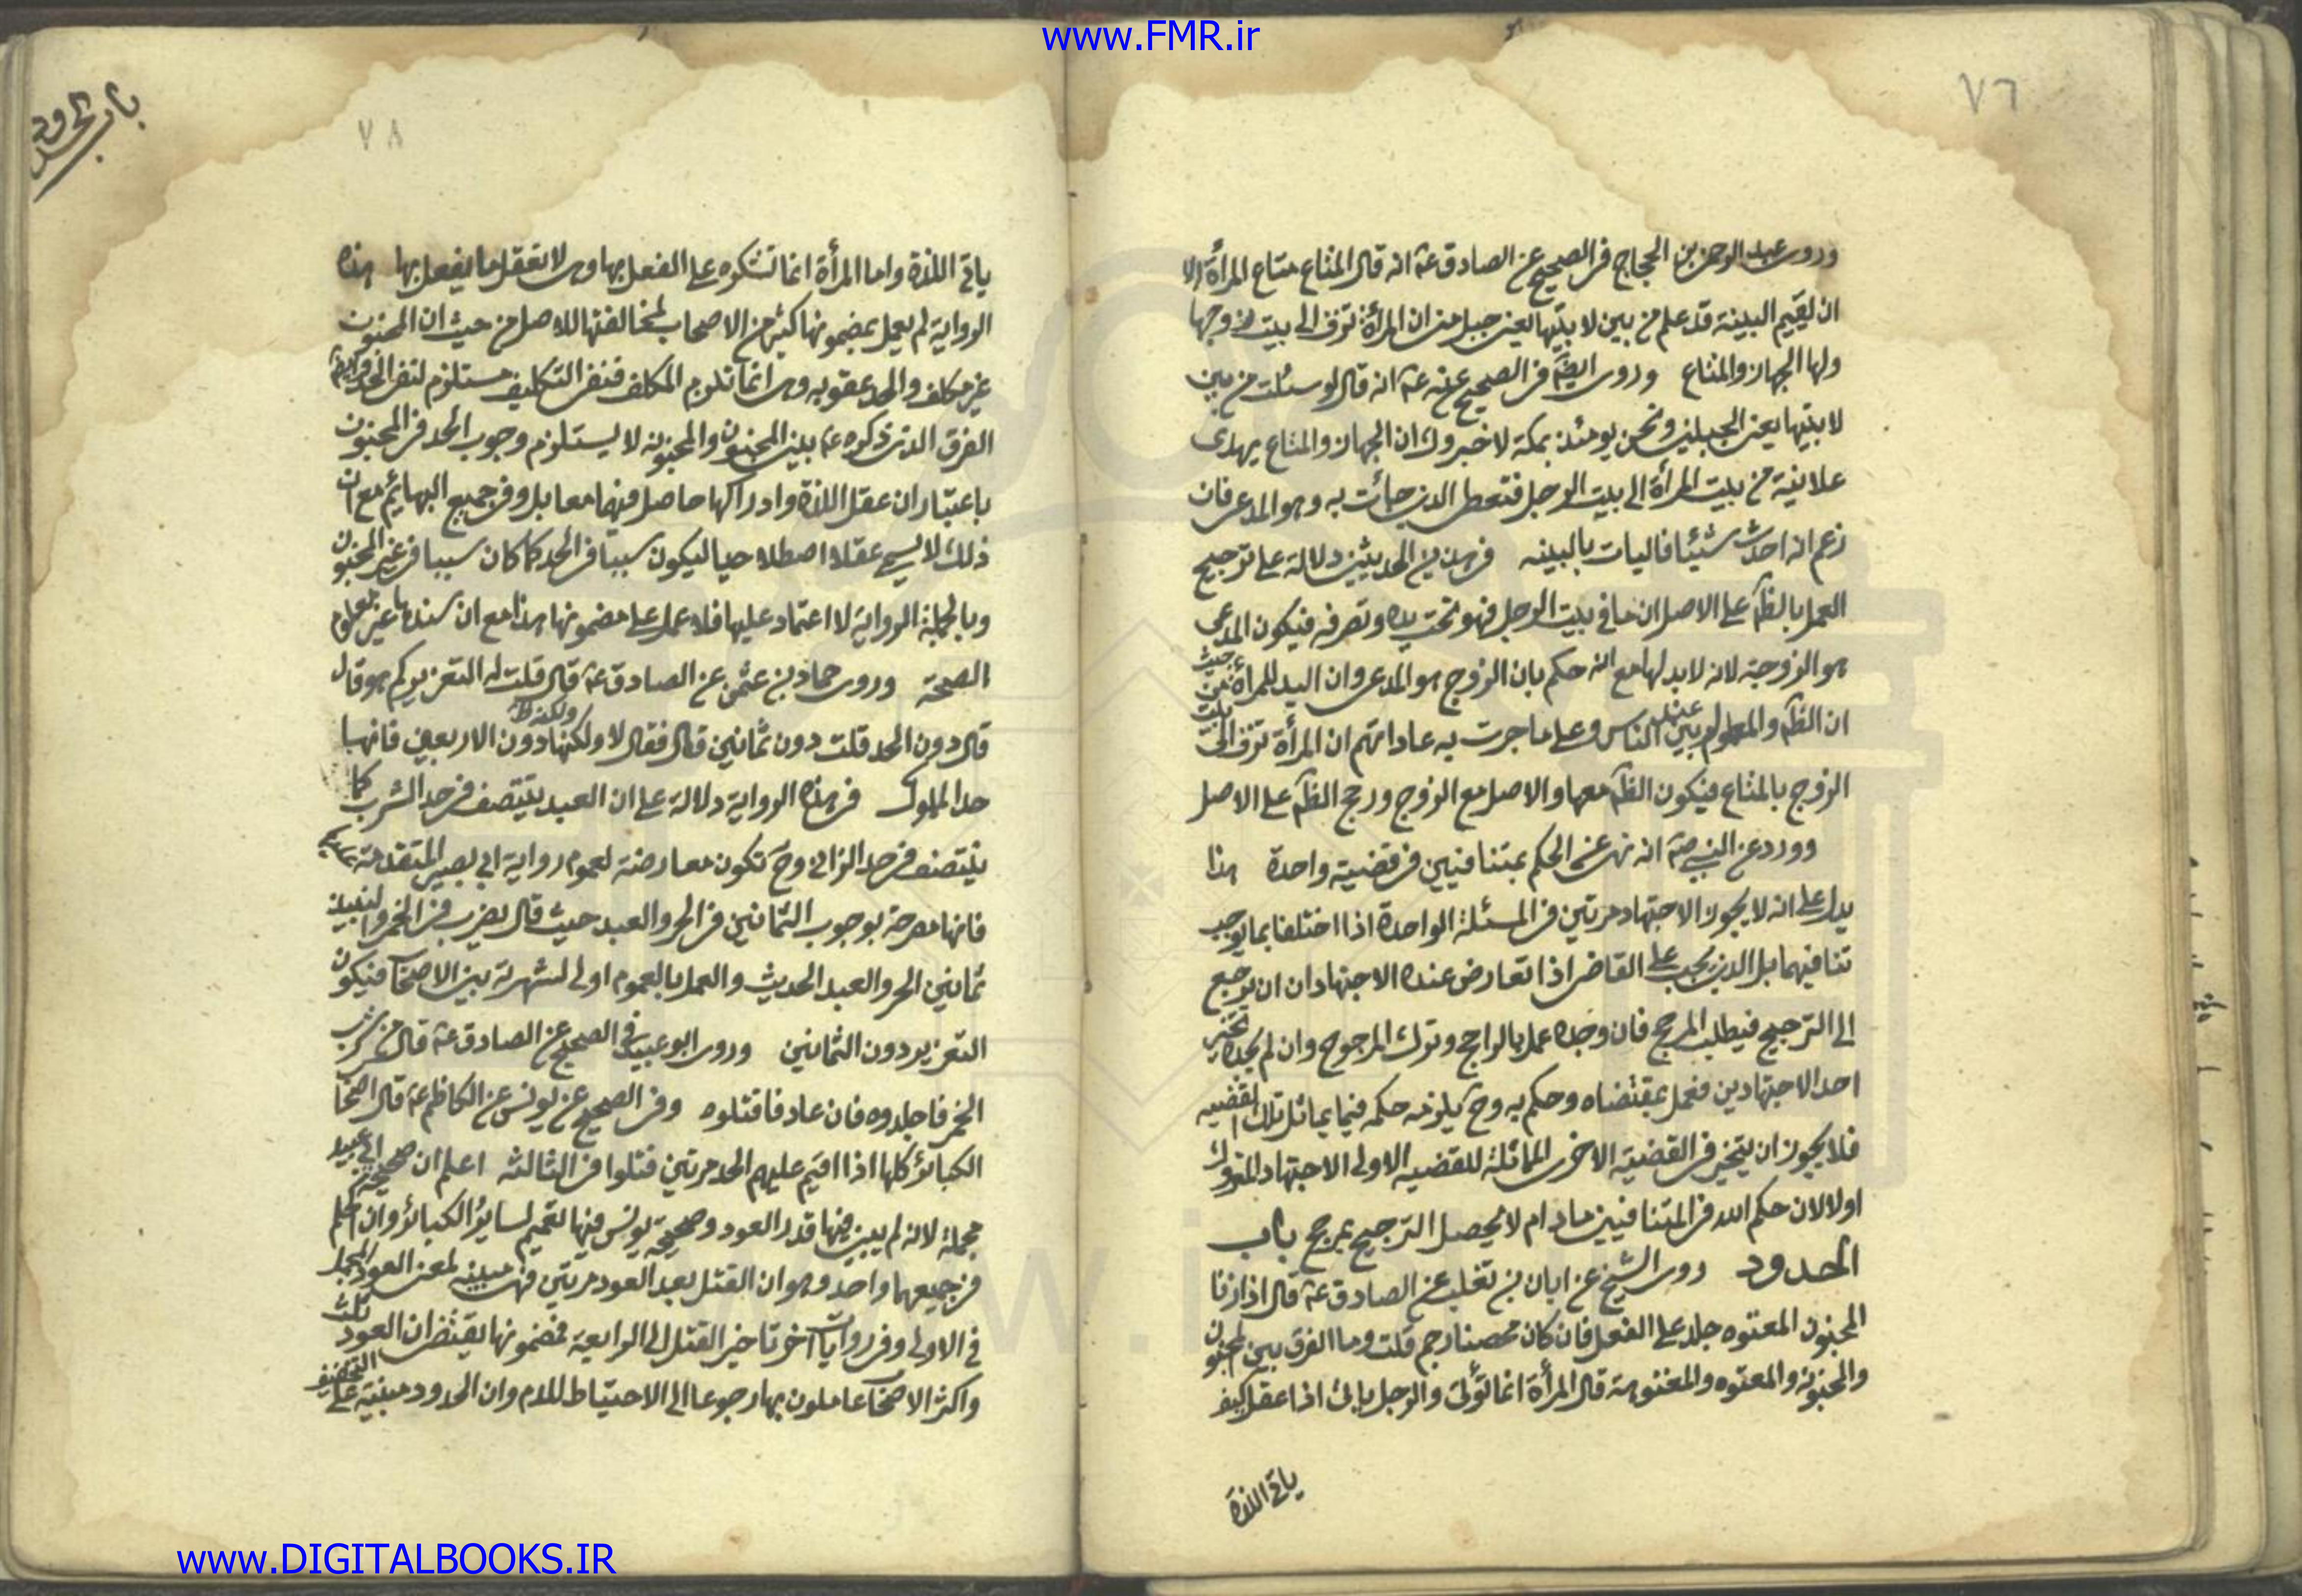 www.FMR.ir
٧٦
وروى عبد الرحمن بن الحجاج فى الصحيح عن الصادق عه انه قال المتاع متاع المرأة الا
ان يقيم البينة قد علم من بين لابتيها يعنى جبلى منى ان المرأة تزف الى بيت زوجها
ولها الجهاز والمتاع وروى ايضا فى الصحيح عنه عه انه قال لو سئلت من بين
لابتيها يعنى الجبلين ونحن يومئذ بمكة لاخبروك ان الجهاز والمتاع يهدى
علانية من بيت المرأة الى بيت الرجل فتعطى الذى جائت به وهو المدعى فان
زعم انه احدث شيئا فاليات بالبينه فى هذين الحديثين دلالة على ترجيح
العمل بالظ على الاصل ان ما فى بيت الرجل فهو تحت يده وتصرفه فيكون المدعى
هو الزوجة لانه لا يد لها مع انه حكم بان الزوج هو المدعى وان اليد للمرأة من حيث
ان الظ والمعلوم بين الناس وعلى ما جرت به عاداتهم ان المرأة تزف الى بيت
الزوج بالمتاع فيكون الظ معها والاصل مع الزوج ورجح الظ على الاصل
وورد عن النبى صه انه نهى عن الحكم بمتنافيين فى قضية واحدة هذا
يدل على انه لا يجوز الاجتهاد مرتين فى المسئلة الواحدة اذا اختلفا بما يوجب
تنافيهما بل الذى يجب على القاضى اذا تعارض عنده الاجتهادان ان يرجع
الى الترجيح فيطلب المرجح فان وجده عمل بالراجح وترك المرجوح وان لم يجده تخير
احد الاجتهادين فعمل بمقتضاه وحكم به وح يلزمه حكمه فيما يماثل تلك القضيه
فلا يجوز ان يتخير فى القضية الاخرى المماثلة للقضيه الاولى الاجتهاد المتروك
اولا لان حكم الله فى المتنافيين مادام لا يحصل الترجيح بمرجح باب
الحدود روى الشيخ عن ابان بن تغلب عن الصادق عه قال اذا زنا
المجنون المعتوه جلد على الفعل فان كان محصنا رجم قلت وما الفرق بين المجنون
والمجنونة والمعتوه والمعتوهة قال المرأة انما تؤتى والرجل ياتى اذا عقل كيف
ياتى اللذة
باب الحدود
٧٨
ياتى اللذة واما المرأة انما تستكره على الفعل بها وهى لا تعقل ما يفعل بها هذه
الرواية لم يعمل بمضمونها كثير من الاصحاب لمخالفتها للاصل من حيث ان المجنون
غير مكلف والحد عقوبه وهى انما تلزم المكلف فنفى التكليف مستلزم لنفى الحد
الفرق الذى ذكره عه بين المجنون والمجنونه لا يستلزم وجوب الحد فى المجنون
باعتبار ان عقل اللذة وادراكها حاصل فيهما معا بل وفى جميع البهائم مع ان
ذلك لا يسمى عقلا اصطلاحيا ليكون سببا فى الحد كما كان سببا فى غير المجنون
وبالجملة الرواية لا اعتماد عليها فلا عمل على مضمونها هذا مع ان سندها غير معلوم
الصحة وروى حماد بن عثمن عن الصادق عه قال قلت له التعزير كم هو قال
قال دون الحد قلت دون ثمانين قال فقال لا ولكنها دون الاربعين فانها
حد المملوك فى هذه الرواية دلالة على ان العبد يتنصف فى حد الشرب كما
يتنصف فى حد الزانى وح تكون معارضة لعموم رواية ابى بصير المتقدمة
فانها مصرحة بوجوب الثمانين فى الحر والعبد حيث قال يضرب فى الخمر والنبيذ
ثمانين الحر والعبد الحديث والعمل بالعموم اولى لشهرته بين الاصحاب فيكون
التعزير دون الثمانين وروى ابو عبيدة فى الصحيح عن الصادق عه قال من شرب
الخمر فاجلدوه فان عاد فاقتلوه وفى الصحيح عن يونس عن الكاظم عه قال اصحاب
الكبائر كلها اذا اقيم عليهم الحد مرتين قتلوا فى الثالثه اعلم ان صحيحة ابى عبيد
مجملة لانه لم يبين فيها قدر العود وصحيحة يونس فيها تعميم لسائر الكبائر وان الحكم
فى جميعها واحد وهو ان القتل بعد العود مرتين فهى مبينه لمعنى العود المجمل
فى الاولى وفى روايات اخر تاخير القتل الى الرابعة فمضمونها يقتضى ان العود ثلث
واكثر الاصحاب عاملون بها رجوعا الى الاحتياط للدم وان الحدود مبنية على التخفيف
www.DIGITALBOOKS.IR